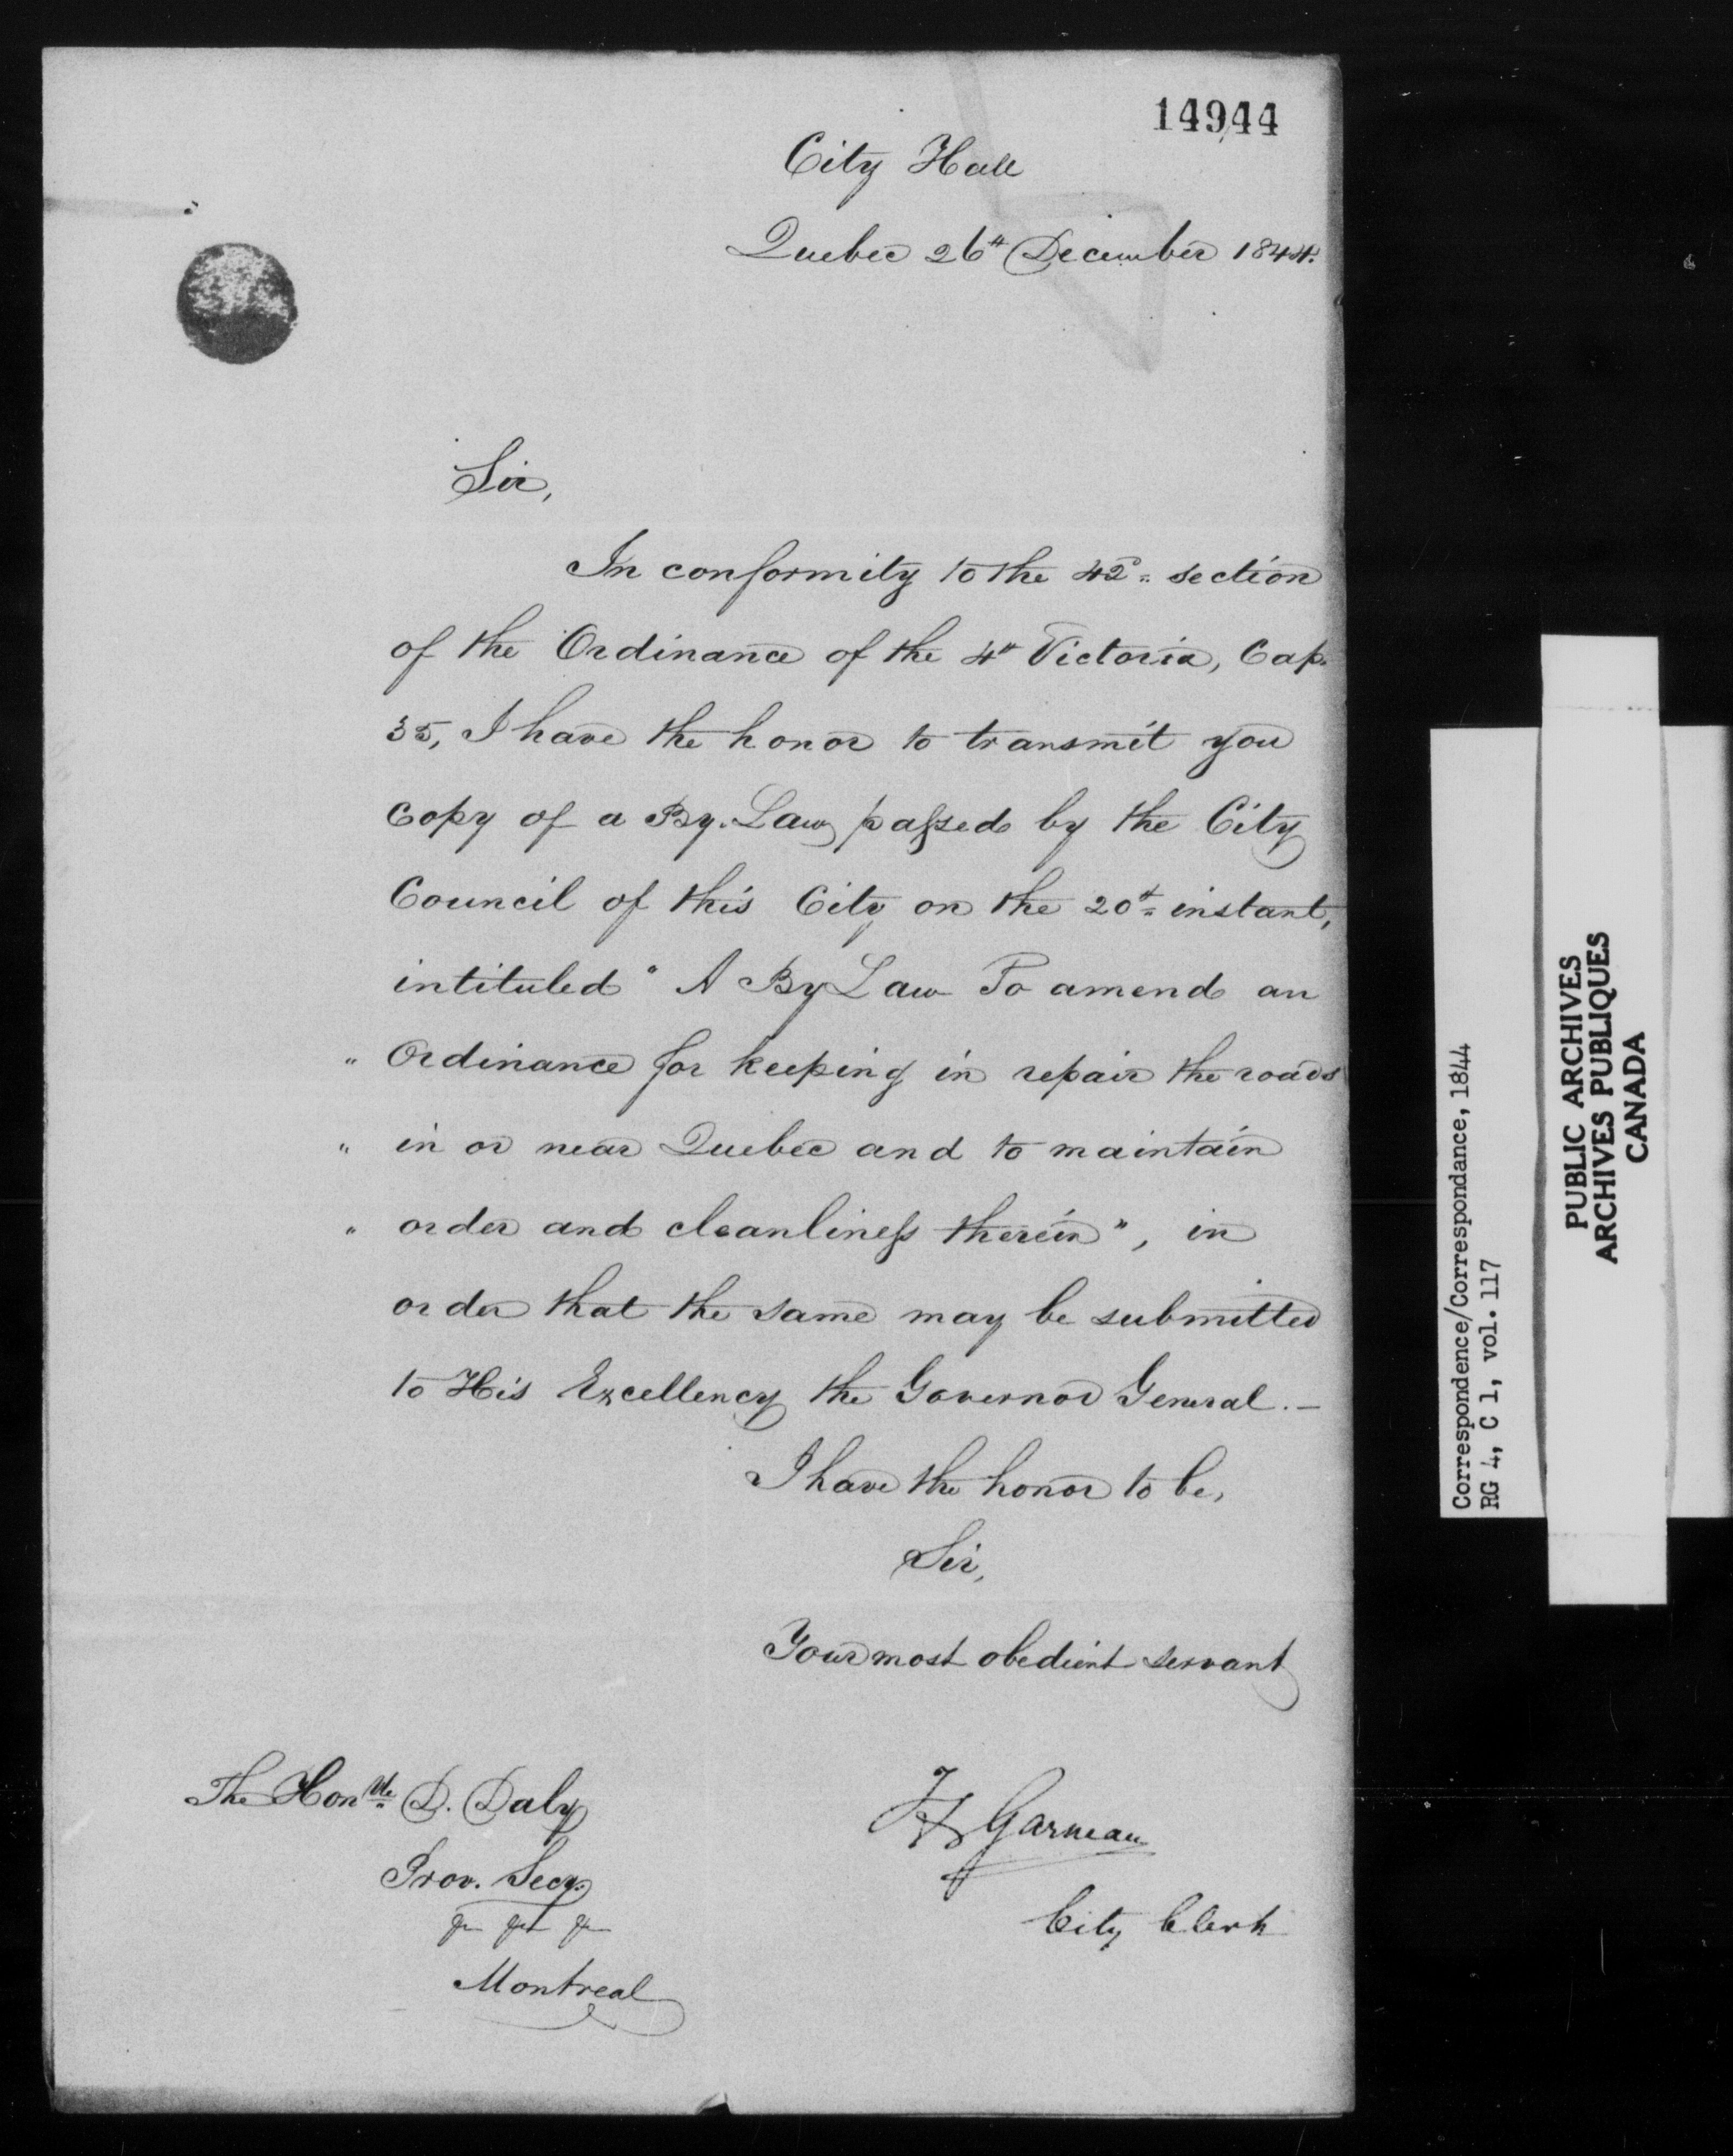 14944
City Hall
Quebec 26th December 1844.
Sir,
In conformity to the 42d. section
of the Ordinance of the 4th Victoria, Cap.
35, I have the honor to transmit you
copy of a By-Law passed by the City
Council of this City on the 20th instant,
intituled " A By Law To amend an
" Ordinance for keeping in repair the roads
" in or near Quebec and to maintain
" order and cleanliness therein", in
order that the same may be submitted
to His Excellency the Governor General. —
I have the honor to be,
Sir,
Your most obedient servant
The Honble D. Daly
Prov. Secy.
&c &c &c
Montreal
FX Garneau
City Clerk
Correspondence/Correspondance, 1844
RG 4, C 1, vol. 117
PUBLIC ARCHIVES
ARCHIVES PUBLIQUES
CANADA